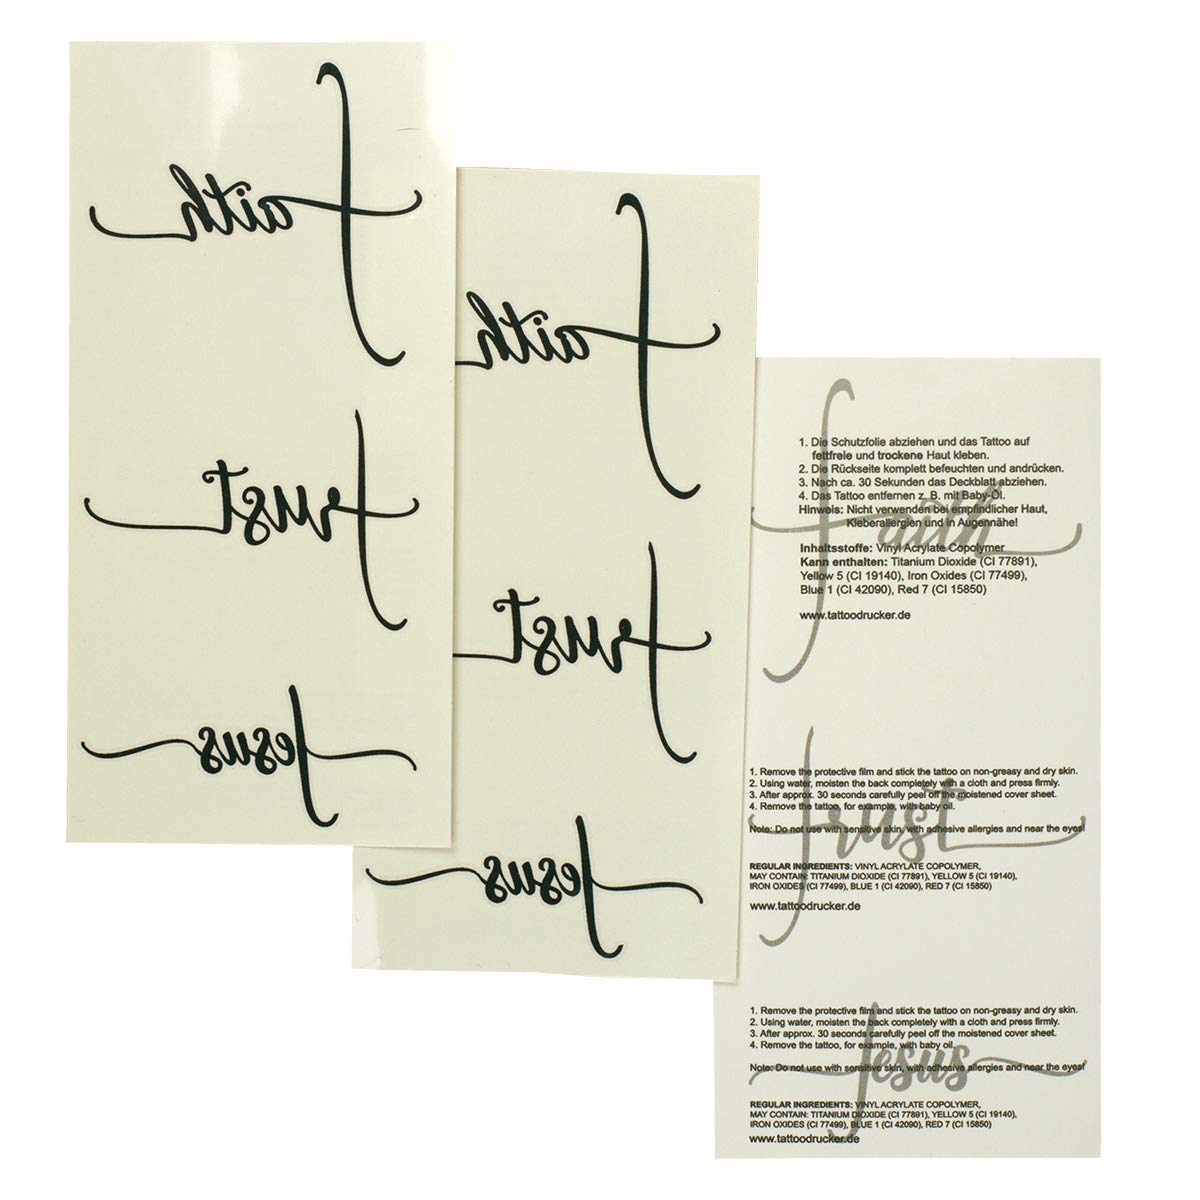 Faith
Trust
Jesus
Faith
Trust
Jesus
1. Die Schutzfolie abziehen und das Tattoo auf
fettfreie und trockene Haut kleben.
2. Die Rückseite komplett befeuchten und andrücken.
3. Nach ca. 30 Sekunden das Deckblatt abziehen.
4. Das Tattoo entfernen z. B. mit Baby-Öl.
Hinweis: Nicht verwenden bei empfindlicher Haut,
Kleberallergien und in Augennähe!
Faith
Inhaltsstoffe: Vinyl Acrylate Copolymer
Kann enthalten: Titanium Dioxide (CI 77891),
Yellow 5 (CI 19140), Iron Oxides (CI 77499),
Blue 1 (CI 42090), Red 7 (CI 15850)
www.tattoodrucker.de
1. Remove the protective film and stick the tattoo on non-greasy and dry skin.
2. Using water, moisten the back completely with a cloth and press firmly.
3. After approx. 30 seconds carefully peel off the moistened cover sheet.
4. Remove the tattoo, for example, with baby oil.
Trust
Note: Do not use with sensitive skin, with adhesive allergies and near the eyes!
REGULAR INGREDIENTS: VINYL ACRYLATE COPOLYMER,
MAY CONTAIN: TITANIUM DIOXIDE (CI 77891), YELLOW 5 (CI 19140),
IRON OXIDES (CI 77499), BLUE 1 (CI 42090), RED 7 (CI 15850)
www.tattoodrucker.de
1. Remove the protective film and stick the tattoo on non-greasy and dry skin.
2. Using water, moisten the back completely with a cloth and press firmly.
3. After approx. 30 seconds carefully peel off the moistened cover sheet.
4. Remove the tattoo, for example, with baby oil.
Jesus
Note: Do not use with sensitive skin, with adhesive allergies and near the eyes!
REGULAR INGREDIENTS: VINYL ACRYLATE COPOLYMER,
MAY CONTAIN: TITANIUM DIOXIDE (CI 77891), YELLOW 5 (CI 19140),
IRON OXIDES (CI 77499), BLUE 1 (CI 42090), RED 7 (CI 15850)
www.tattoodrucker.de